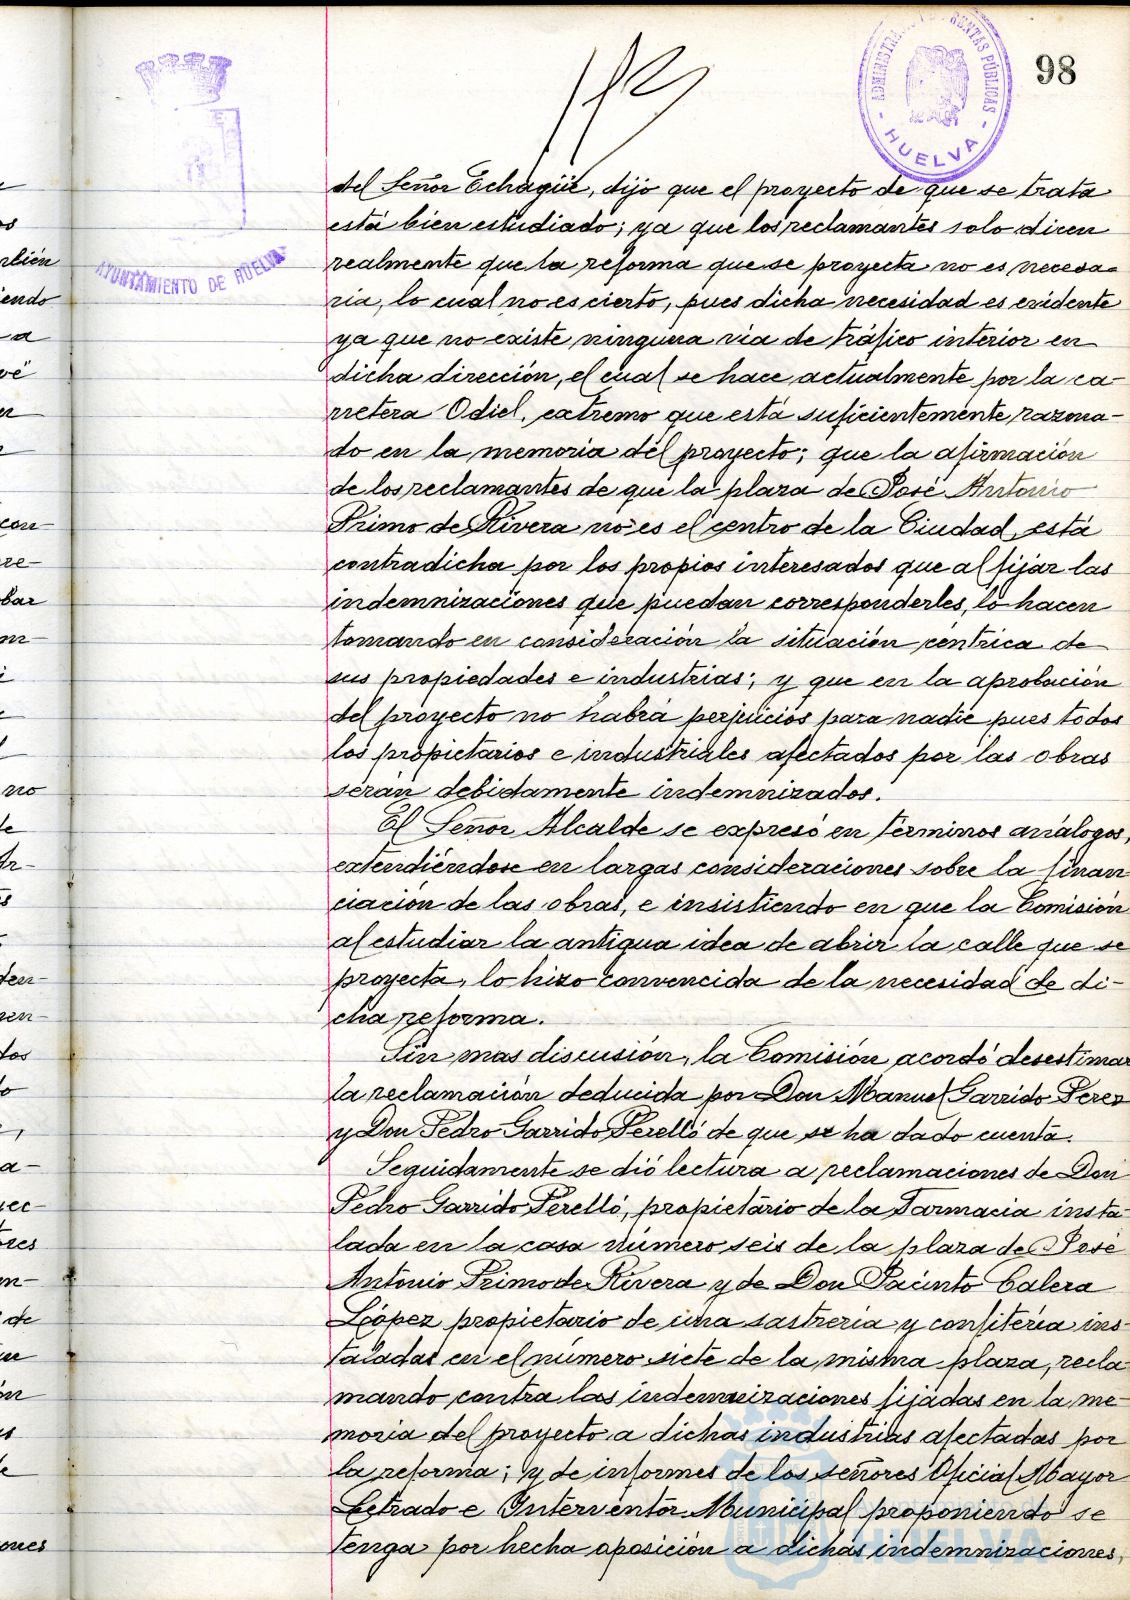 98
ADMINISTRACIÓN DE RENTAS PÚBLICAS
- HUELVA -
AYUNTAMIENTO DE HUELVA
del Señor Echagüe, dijo que el proyecto de que se trata
está bien estudiado; ya que los reclamantes solo dicen
realmente que la reforma que se proyecta no es necesa-
ria, lo cual no es cierto, pues dicha necesidad es evidente
ya que no existe ninguna via de tráfico interior en
dicha dirección, el cual se hace actualmente por la ca-
rretera Odiel, extremo que está suficientemente razona-
do en la memoria del proyecto; que la afirmación
de los reclamantes de que la plaza de José Antonio
Primo de Rivera no es el centro de la Ciudad, está
contradicha por los propios interesados que al fijar las
indemnizaciones que puedan corresponderles, lo hacen
tomando en consideración la situación céntrica de
sus propiedades e industrias; y que en la aprobación
del proyecto no habrá perjuicios para nadie pues todos
los propietarios e industriales afectados por las obras
serán debidamente indemnizados.
El Señor Alcalde se expresó en términos análogos,
extendiéndose en largas consideraciones sobre la finan
ciación de las obras, e insistiendo en que la Comisión
al estudiar la antigua idea de abrir la calle que se
proyecta, lo hizo convencida de la necesidad de di-
cha reforma.
Sin mas discusión, la Comisión acordó desestimar
la reclamación deducida por Don Manuel Garrido Perez
y Don Pedro Garrido Perelló de que se ha dado cuenta.
Seguidamente se dió lectura a reclamaciones de Don
Pedro Garrido Perelló, propietario de la Farmacia insta-
lada en la casa número seis de la plaza de José
Antonio Primo de Rivera y de Don Jacinto Calera
López propietario de una sastrería y confitería ins-
taladas en el número siete de la misma plaza, recla-
mando contra las indemnizaciones fijadas en la me-
moria del proyecto a dichas industrias afectadas por
la reforma; y de informes de los señores Oficial Mayor
Letrado e Interventor Municipal proponiendo se
tenga por hecha oposición a dichas indemnizaciones,
HUELVA